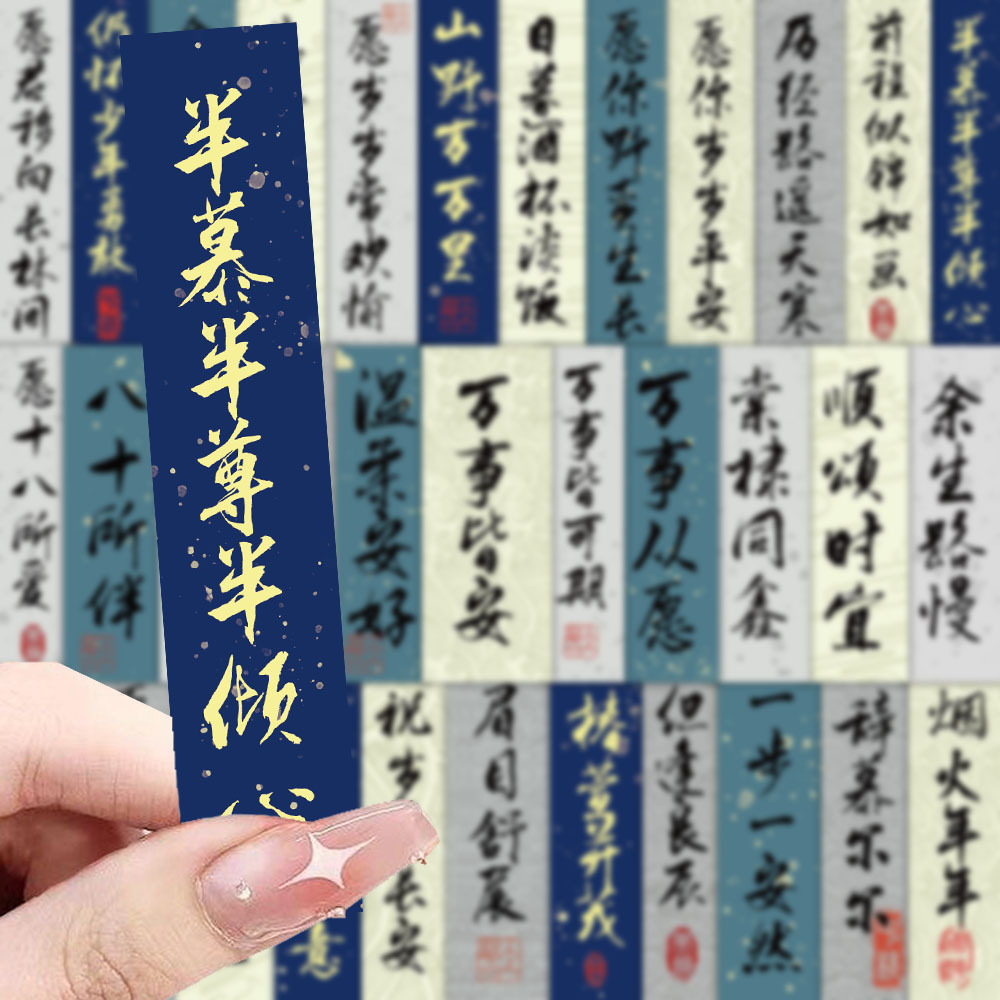 半慕半尊半倾心
愿君移向长林间
仍怀少年勇敢
愿岁岁常欢愉
山野万万里
日暮酒杯淡饭
愿你野蛮生长
愿你岁岁平安
历经路遥天寒
前程似锦如画
半慕半尊半倾心
愿十八所爱
八十所伴
温柔安好
万事皆安
万事皆可期
万事从愿
棠棣同鑫
顺颂时宜
余生路慢
意
祝岁岁长安
眉目舒展
椿萱并茂
但逢良辰
一步一安然
辞慕尔尔
烟火年年